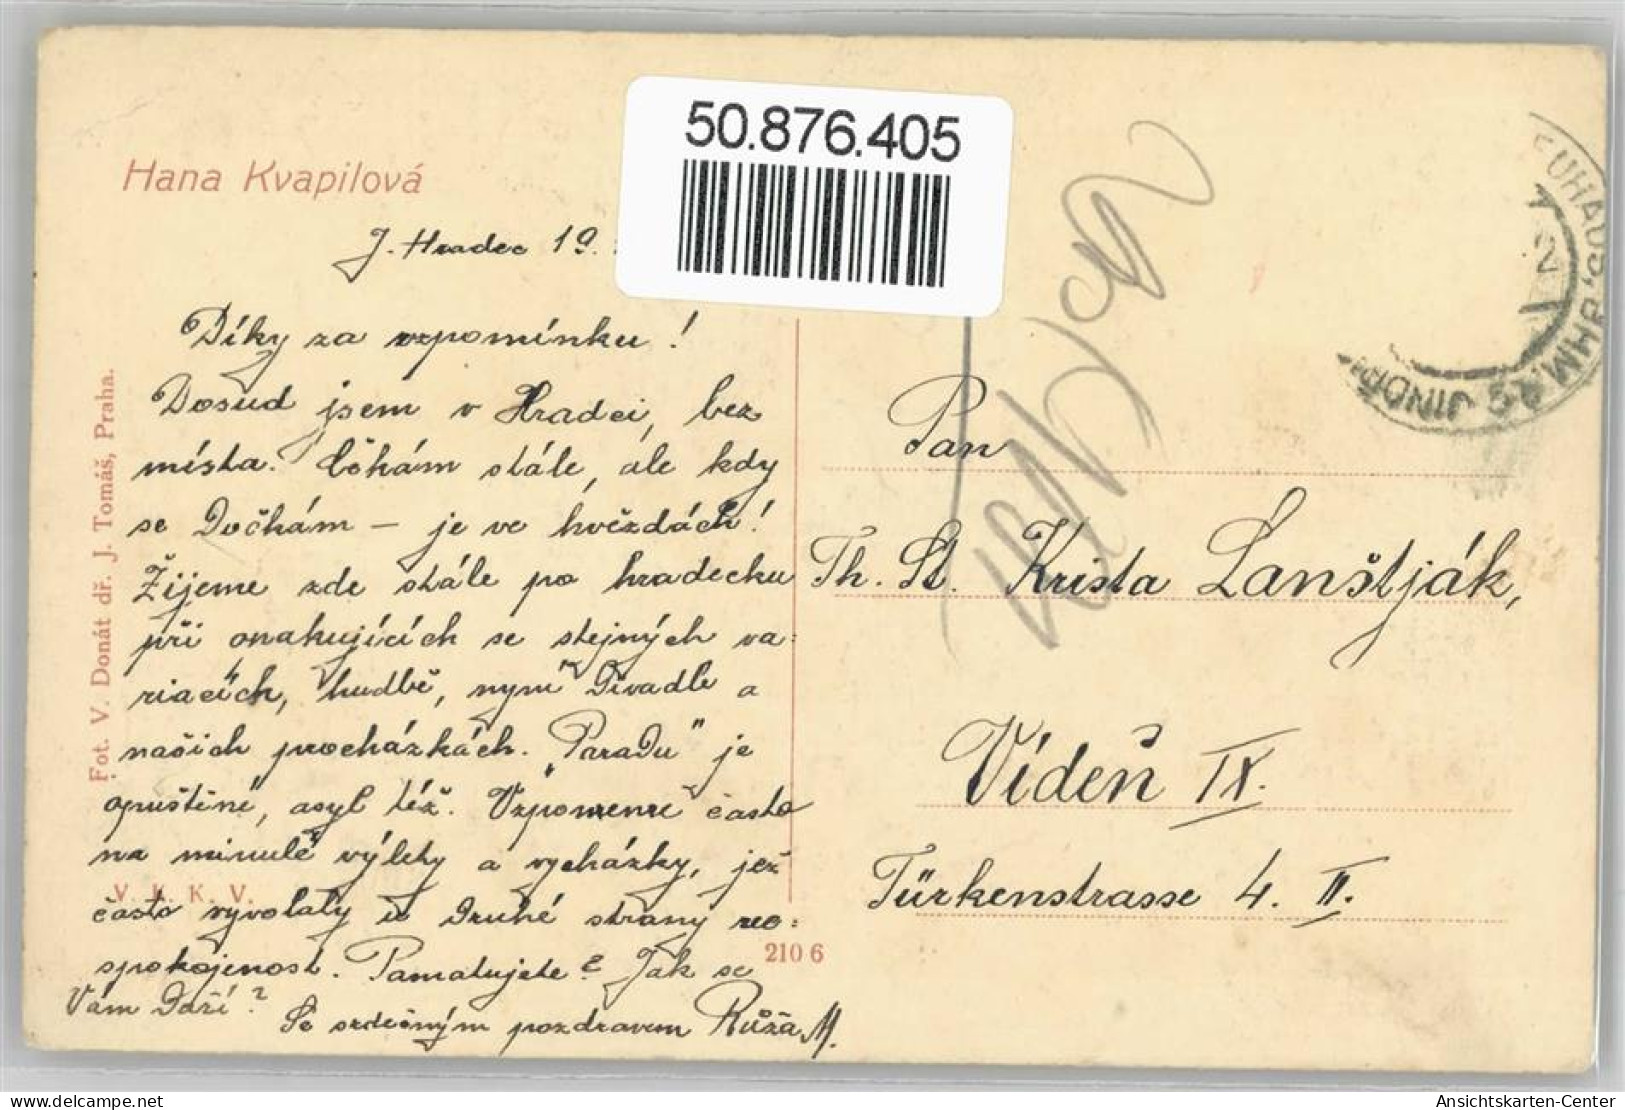 50.876.405
Hana Kvapilová
J. Hradec 19.
Díky za vzpomínku!
Dosud jsem v Hradci, bez
místa. Čekám stále, ale kdy
se dočkám – je ve hvězdách!
Žijeme zde stále po hradecku
při opakujících se stejných va=
riacích, hudbě, nyní divadle a
našich procházkách. "Paradu" je
opuštěné, asyl též. Vzpomenu často
na minulé výlety a vycházky, jež
často vyvolaly u druhé strany neo=
spokojenost. Pamatujete? Jak se
Vám daří?
Se srdečným pozdravem Růža M.
Fot. V. Donát dř. J. Tomáš, Praha.
V. K. K. V.
2106
Pan
Th. St. Krista Lanštják,
Vídeň IX.
Türkenstrasse 4. II.
Ansichtskarten-Center
www.delcampe.net